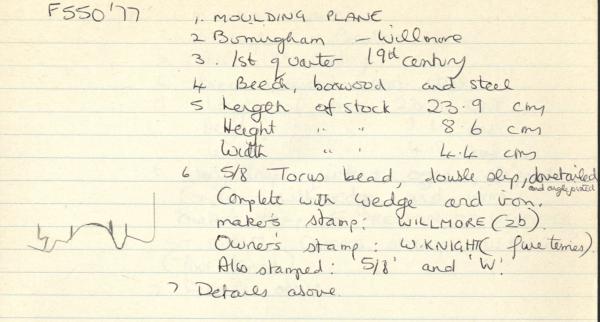 F550'77
1. MOULDING PLANE
2 Birmingham - Willmore
3. 1st quarter 19th century
4 Beech, boxwood and steel
5 Length of stock 23.9 cms
Height " " 8.6 cms
Width " " 4.4 cms
6 5/8 Torus bead, double slip, dovetailed and angle jointed
Complete with wedge and iron.
maker's stamp: WILLMORE (2b).
Owner's stamp: W.KNIGHT (five times).
Also stamped: '5/8' and 'W'.
7 Details above.